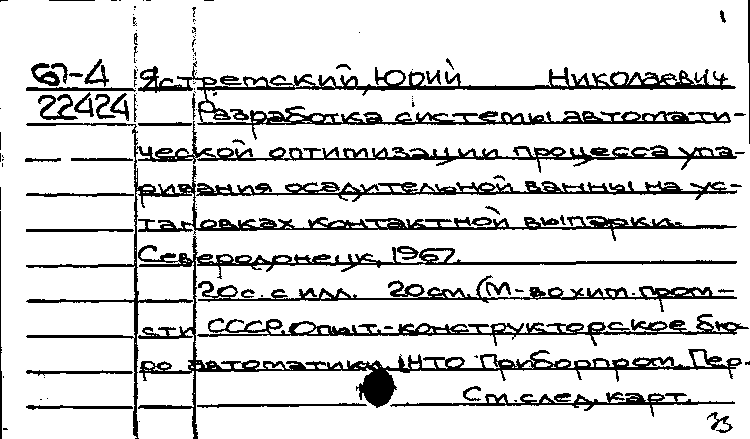 1
67-4 Ястремский, Юрий Николаевич
22424 Разработка системы автомати-
ческой оптимизации процесса упа-
ривания осадительной ванны на ус-
тановках контактной выпарки.
Северодонецк, 1967.
20с. с илл. 20см. (М-во хим. пром-
сти СССР. Опыт.-конструкторское бю-
ро автоматики. НТО Приборпром. Пер-
См. след. карт.